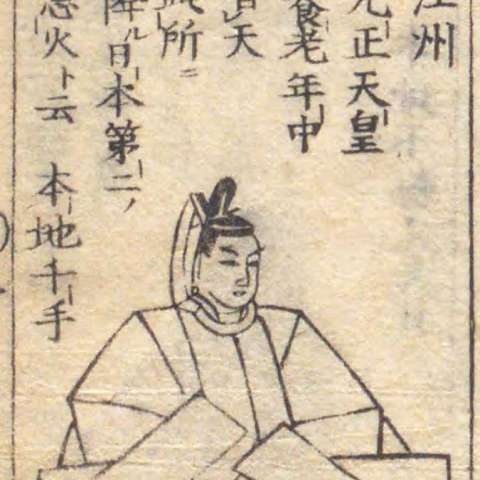 江州
元正天皇
養老年中
天
此所ニ
降ル日本第二ノ
悪火ト云 本地千手